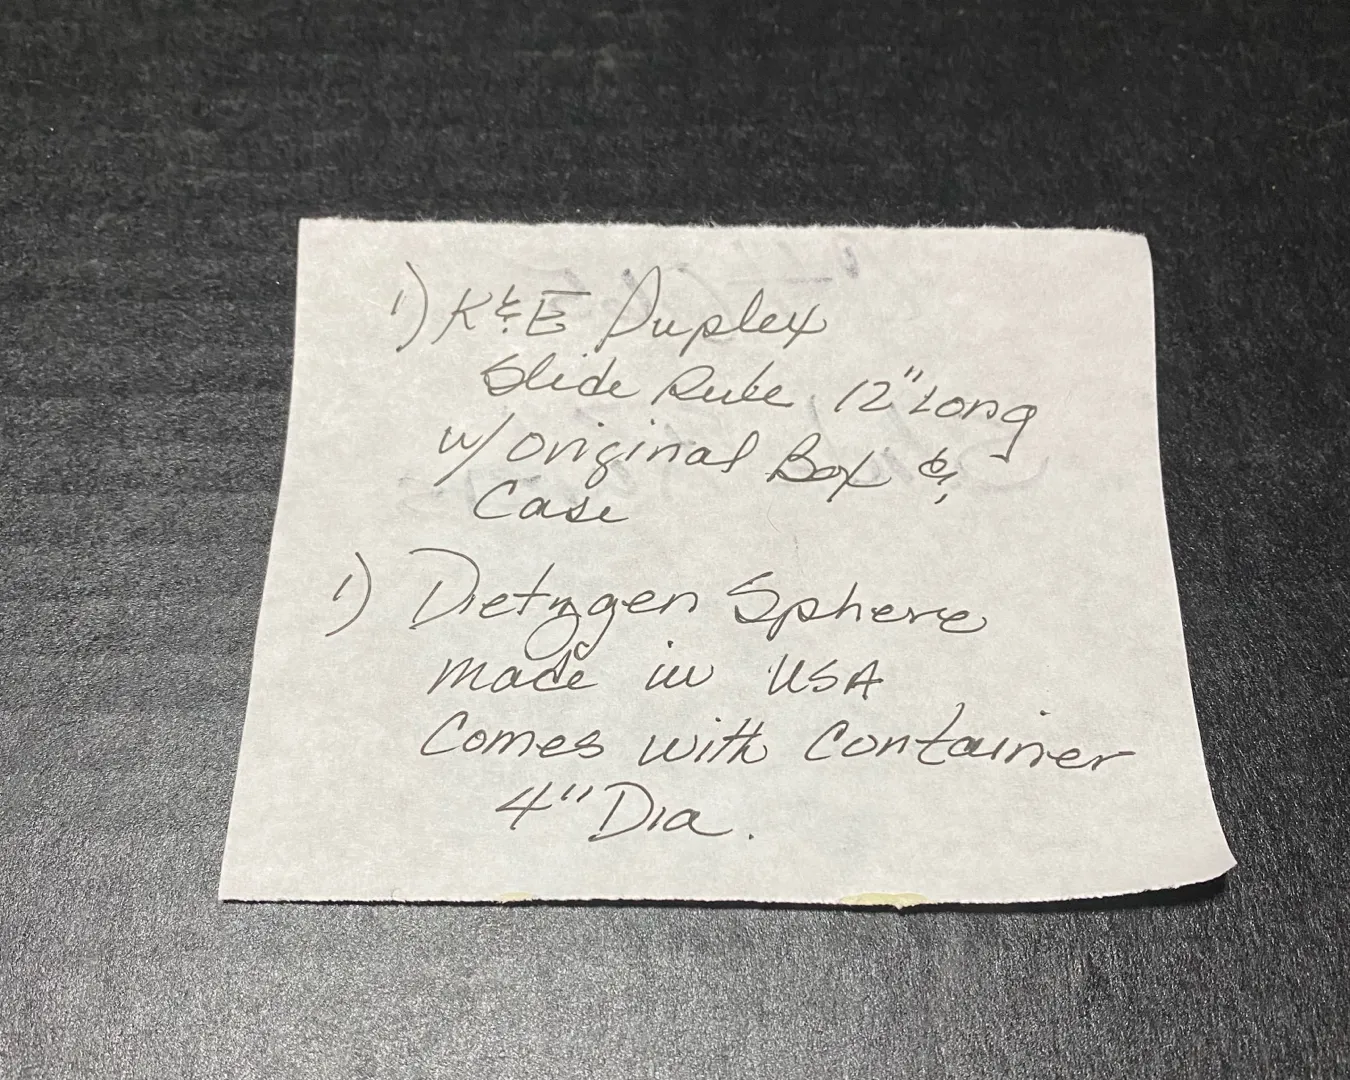 1) K&E Duplex
Slide Rule 12" Long
w/ original Box &
Case
1) Dietzgen Sphere
made in USA
Comes with Container
4" Dia.